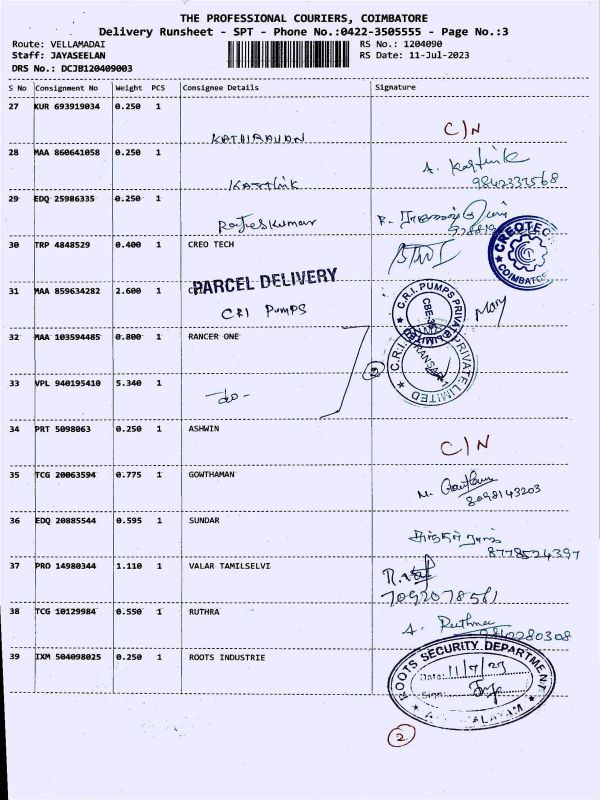 THE PROFESSIONAL COURIERS, COIMBATORE
Delivery Runsheet - SPT - Phone No.:0422-3505555 - Page No.:3
Route: VELLAMADAI RS No.: 1204090
Staff: JAYASEELAN RS Date: 11-Jul-2023
DRS No.: DCJB120409003
S No Consignment No Weight PCS Consignee Details Signature
27 KUR 693919034 0.250 1
KATHIRAVAN C/N
28 MAA 860641058 0.250 1
Karthik A. Karthik
9842337568
29 EDQ 25986335 0.250 1
Rajeskumar
30 TRP 4848529 0.400 1 CREO TECH
CREOTEC
COIMBATO
31 MAA 859634282 2.600 1
PARCEL DELIVERY
CRI Pumps
C.R.I. PUMPS PRIVATE LIMITED
CBE-
Mary
32 MAA 103594485 0.800 1 RANCER ONE
C.R.I. PRIVATE LIMITED
33 VPL 940195410 5.340 1
-do-
34 PRT 5098063 0.250 1 ASHWIN
C/N
35 TCG 20063594 0.775 1 GOWTHAMAN
8098143203
36 EDQ 20885544 0.595 1 SUNDAR
8778524397
37 PRO 14980344 1.110 1 VALAR TAMILSELVI
7092078561
38 TCG 10129984 0.550 1 RUTHRA
A. Ruthra
9840280308
39 IXM 504098025 0.250 1 ROOTS INDUSTRIE
ROOTS SECURITY DEPARTMENT
Date: 11/7/23
Sign:
2